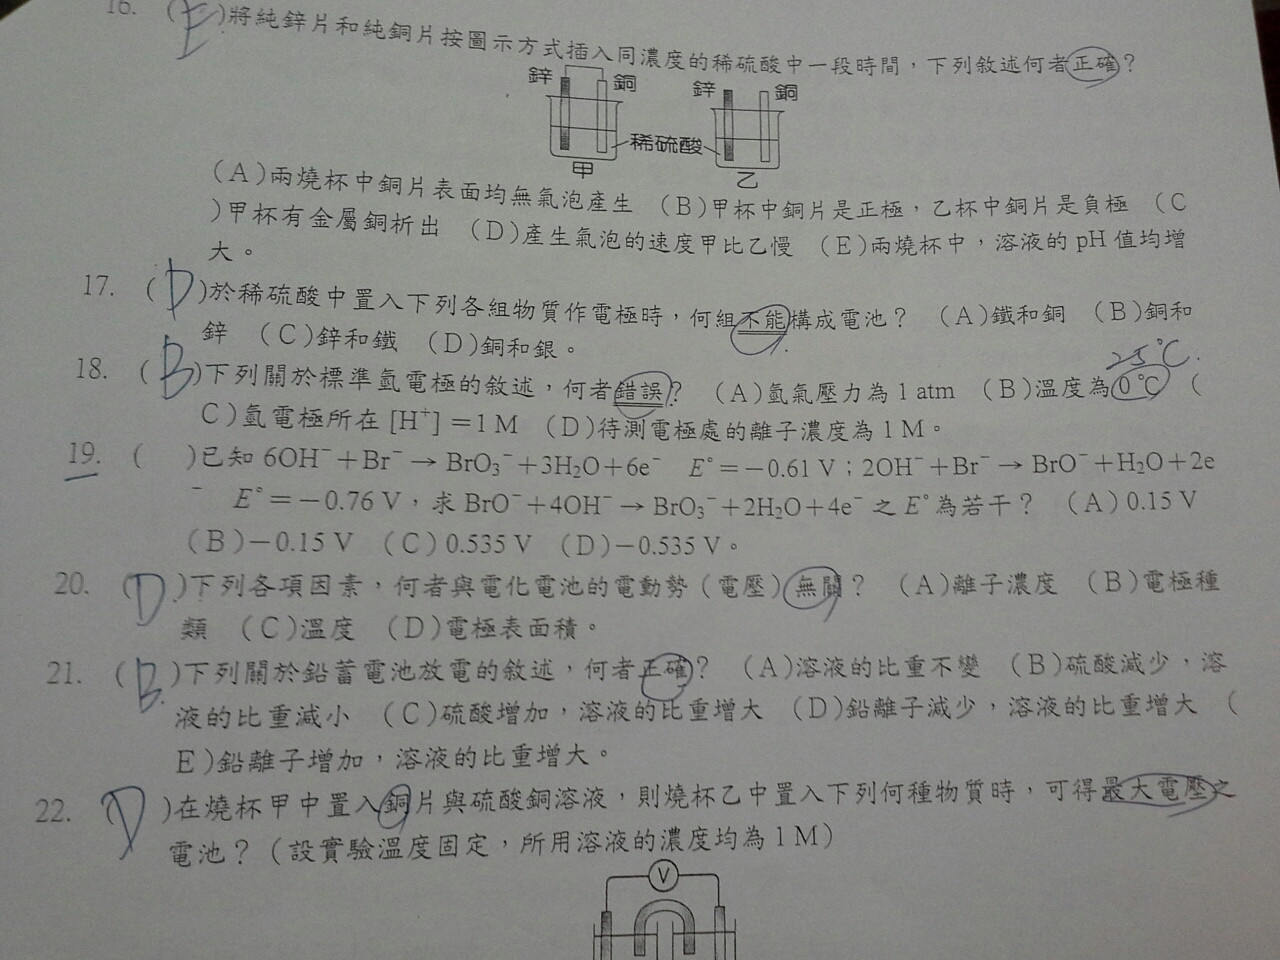 16. (E)將純鋅片和純銅片按圖示方式插入同濃度的稀硫酸中一段時間，下列敘述何者正確？
鋅 銅 鋅 銅
稀硫酸
甲 乙
(A)兩燒杯中銅片表面均無氣泡產生 (B)甲杯中銅片是正極，乙杯中銅片是負極 (C
)甲杯有金屬銅析出 (D)產生氣泡的速度甲比乙慢 (E)兩燒杯中，溶液的 pH 值均增
大。
17. (D)於稀硫酸中置入下列各組物質作電極時，何組不能構成電池？ (A)鐵和銅 (B)銅和
鋅 (C)鋅和鐵 (D)銅和銀。
25°C.
18. (B)下列關於標準氫電極的敘述，何者錯誤？ (A)氫氣壓力為 1 atm (B)溫度為 0℃ (
C)氫電極所在 [H⁺] ＝1 M (D)待測電極處的離子濃度為 1 M。
19. ( )已知 6OH⁻＋Br⁻→BrO₃⁻＋3H₂O＋6e⁻ E°＝−0.61 V；2OH⁻＋Br⁻→BrO⁻＋H₂O＋2e
⁻ E°＝−0.76 V，求 BrO⁻＋4OH⁻→BrO₃⁻＋2H₂O＋4e⁻ 之 E° 為若干？ (A) 0.15 V
(B)−0.15 V (C) 0.535 V (D)−0.535 V。
20. (D)下列各項因素，何者與電化電池的電動勢（電壓）無關？ (A)離子濃度 (B)電極種
類 (C)溫度 (D)電極表面積。
21. (B)下列關於鉛蓄電池放電的敘述，何者正確？ (A)溶液的比重不變 (B)硫酸減少，溶
液的比重減小 (C)硫酸增加，溶液的比重增大 (D)鉛離子減少，溶液的比重增大 (
E)鉛離子增加，溶液的比重增大。
22. (D)在燒杯甲中置入銅片與硫酸銅溶液，則燒杯乙中置入下列何種物質時，可得最大電壓之
電池？（設實驗溫度固定，所用溶液的濃度均為 1 M）
V